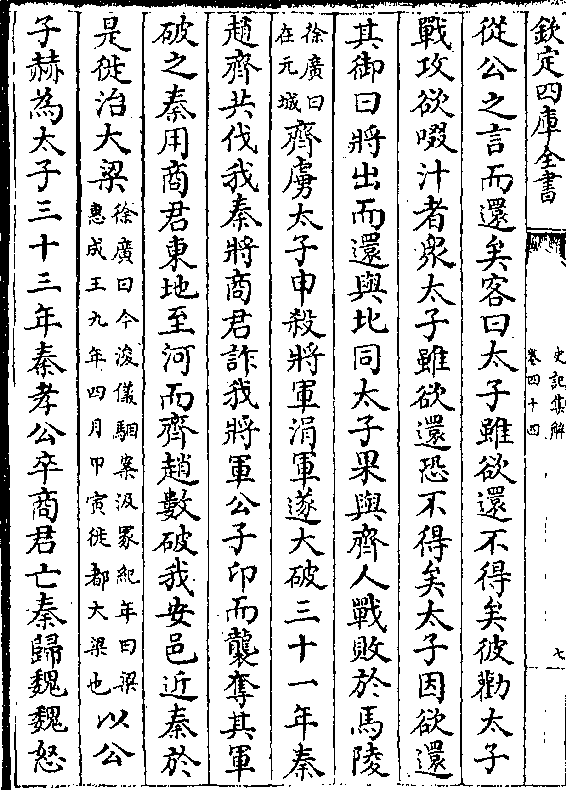 欽定四庫全書
史記集解
卷四十四
七
從公之言而還矣客曰太子雖欲還不得矣彼勸太子
戰攻欲啜汁者衆太子雖欲還恐不得矣太子因欲還
其御曰將出而還與北同太子果與齊人戰敗於馬陵
徐廣曰
在元城
齊虜太子申殺將軍涓軍遂大破三十一年秦
趙齊共伐我秦將商君詐我將軍公子卬而襲奪其軍
破之秦用商君東地至河而齊趙數破我安邑近秦於
是徙治大梁
徐廣曰今浚儀駰案汲冢紀年曰梁
惠成王九年四月甲寅徙都大梁也
以公
子赫為太子三十三年秦孝公卒商君亡秦歸魏魏怒